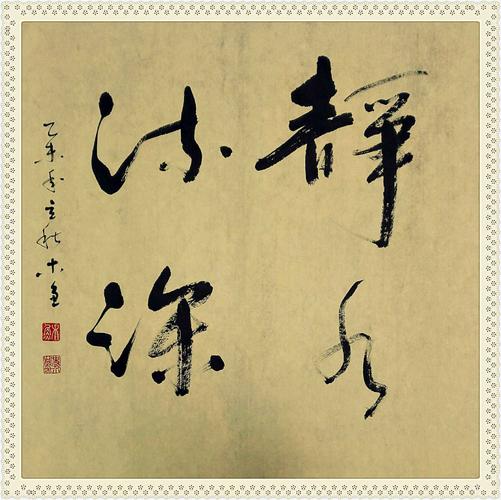 靜水
流深
乙未年立秋